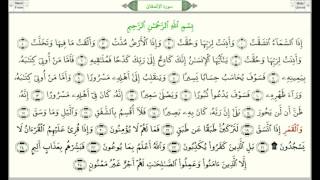 سورة الإنشقاق
بِسْمِ ٱللَّهِ ٱلرَّحْمَٰنِ ٱلرَّحِيمِ
إِذَا ٱلسَّمَآءُ ٱنشَقَّتْ ۝ وَأَذِنَتْ لِرَبِّهَا وَحُقَّتْ ۝ وَإِذَا ٱلْأَرْضُ مُدَّتْ ۝ وَأَلْقَتْ مَا فِيهَا وَتَخَلَّتْ ۝
وَأَذِنَتْ لِرَبِّهَا وَحُقَّتْ ۝ يَٰٓأَيُّهَا ٱلْإِنسَٰنُ إِنَّكَ كَادِحٌ إِلَىٰ رَبِّكَ كَدْحًا فَمُلَٰقِيهِ ۝ فَأَمَّا مَنْ أُوتِىَ كِتَٰبَهُۥ
بِيَمِينِهِۦ ۝ فَسَوْفَ يُحَاسَبُ حِسَابًا يَسِيرًا ۝ وَيَنقَلِبُ إِلَىٰٓ أَهْلِهِۦ مَسْرُورًا ۝ وَأَمَّا مَنْ أُوتِىَ كِتَٰبَهُۥ
وَرَآءَ ظَهْرِهِۦ ۝ فَسَوْفَ يَدْعُوا۟ ثُبُورًا ۝ وَيَصْلَىٰ سَعِيرًا ۝ إِنَّهُۥ كَانَ فِىٓ أَهْلِهِۦ مَسْرُورًا ۝ إِنَّهُۥ
ظَنَّ أَن لَّن يَحُورَ ۝ بَلَىٰٓ إِنَّ رَبَّهُۥ كَانَ بِهِۦ بَصِيرًا ۝ فَلَآ أُقْسِمُ بِٱلشَّفَقِ ۝ وَٱلَّيْلِ وَمَا وَسَقَ ۝
وَٱلْقَمَرِ إِذَا ٱتَّسَقَ ۝ لَتَرْكَبُنَّ طَبَقًا عَن طَبَقٍ ۝ فَمَا لَهُمْ لَا يُؤْمِنُونَ ۝ وَإِذَا قُرِئَ عَلَيْهِمُ ٱلْقُرْءَانُ لَا
يَسْجُدُونَ ۝ بَلِ ٱلَّذِينَ كَفَرُوا۟ يُكَذِّبُونَ ۝ وَٱللَّهُ أَعْلَمُ بِمَا يُوعُونَ ۝ فَبَشِّرْهُم بِعَذَابٍ أَلِيمٍ ۝
إِلَّا ٱلَّذِينَ ءَامَنُوا۟ وَعَمِلُوا۟ ٱلصَّٰلِحَٰتِ لَهُمْ أَجْرٌ غَيْرُ مَمْنُونٍۭ ۝